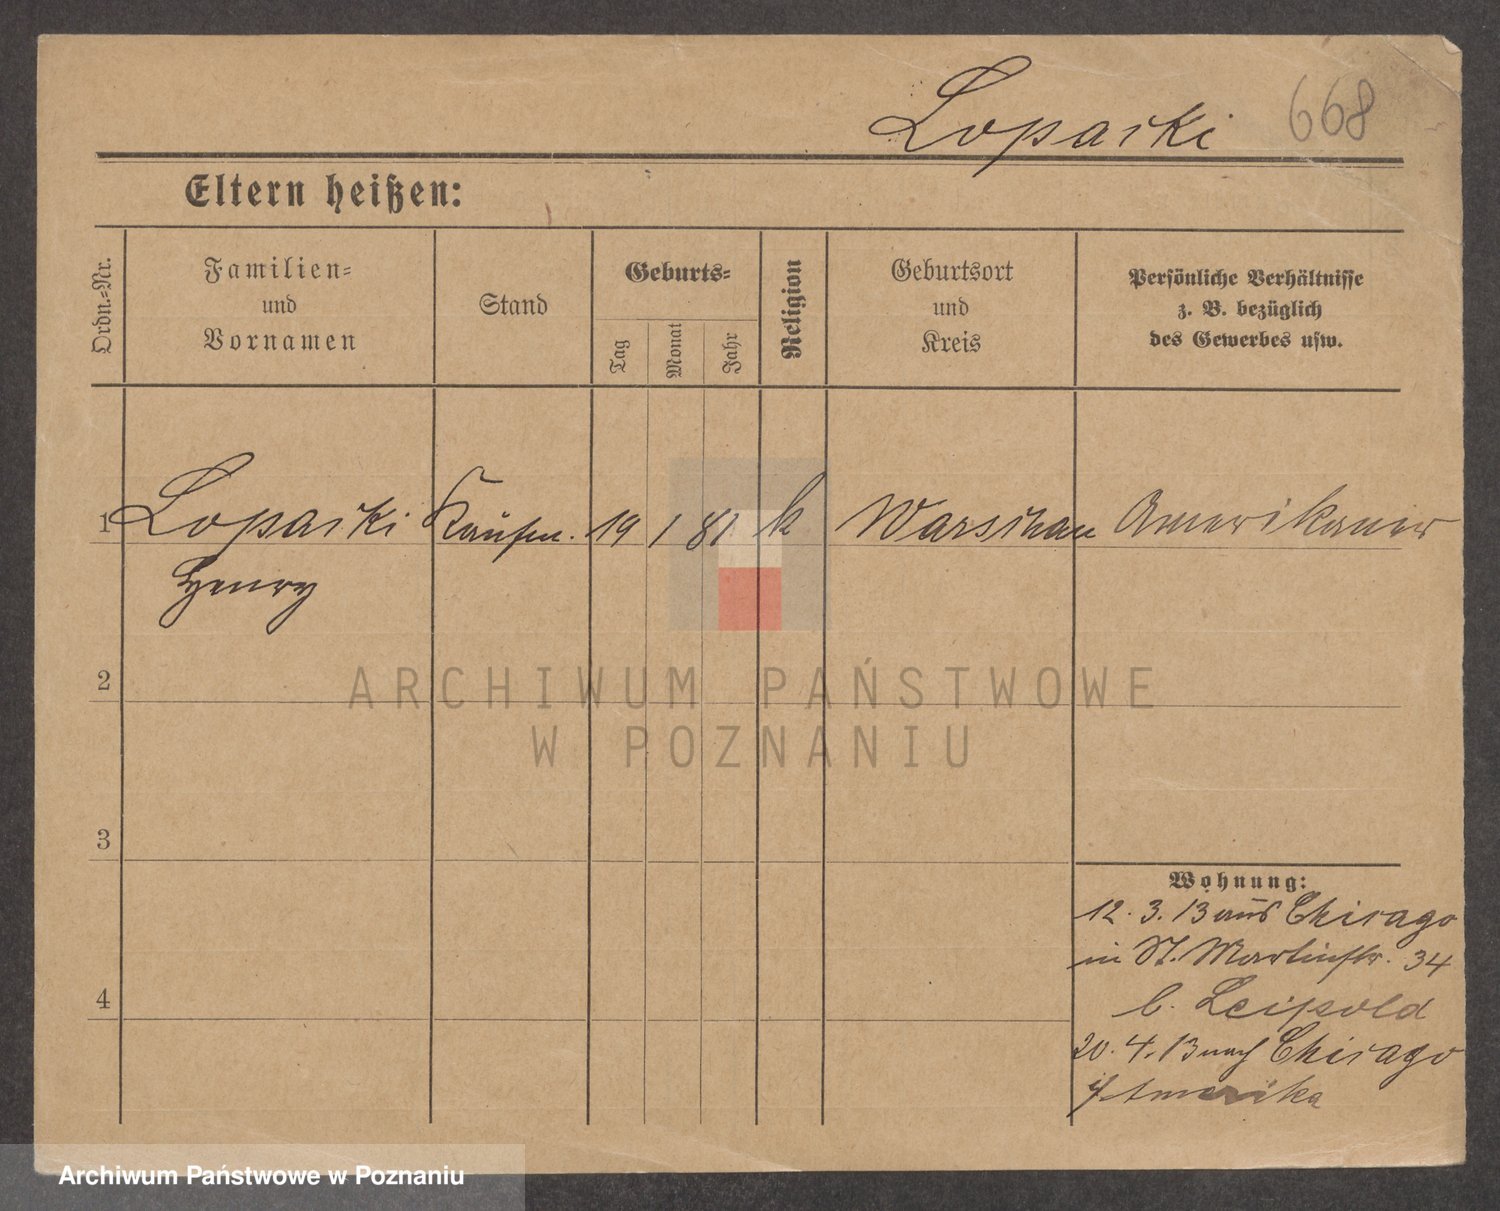 Lopacki 668
Eltern heißen:
Ordn.-Nr.
Familien-
und
Vornamen
Stand
Geburts-
Tag
Monat
Jahr
Religion
Geburtsort
und
Kreis
Persönliche Verhältnisse
z. B. bezüglich
des Gewerbes usw.
1 Lopacki Kaufm. 19 1 81 k Warschau Amerikaner
Henry
2
ARCHIWUM PAŃSTWOWE
W POZNANIU
3
Wohnung:
12. 3. 13 aus Chicago
in St. Martinstr. 34
4
b. Leipold
20. 4. 13 nach Chicago
Amerika
Archiwum Państwowe w Poznaniu